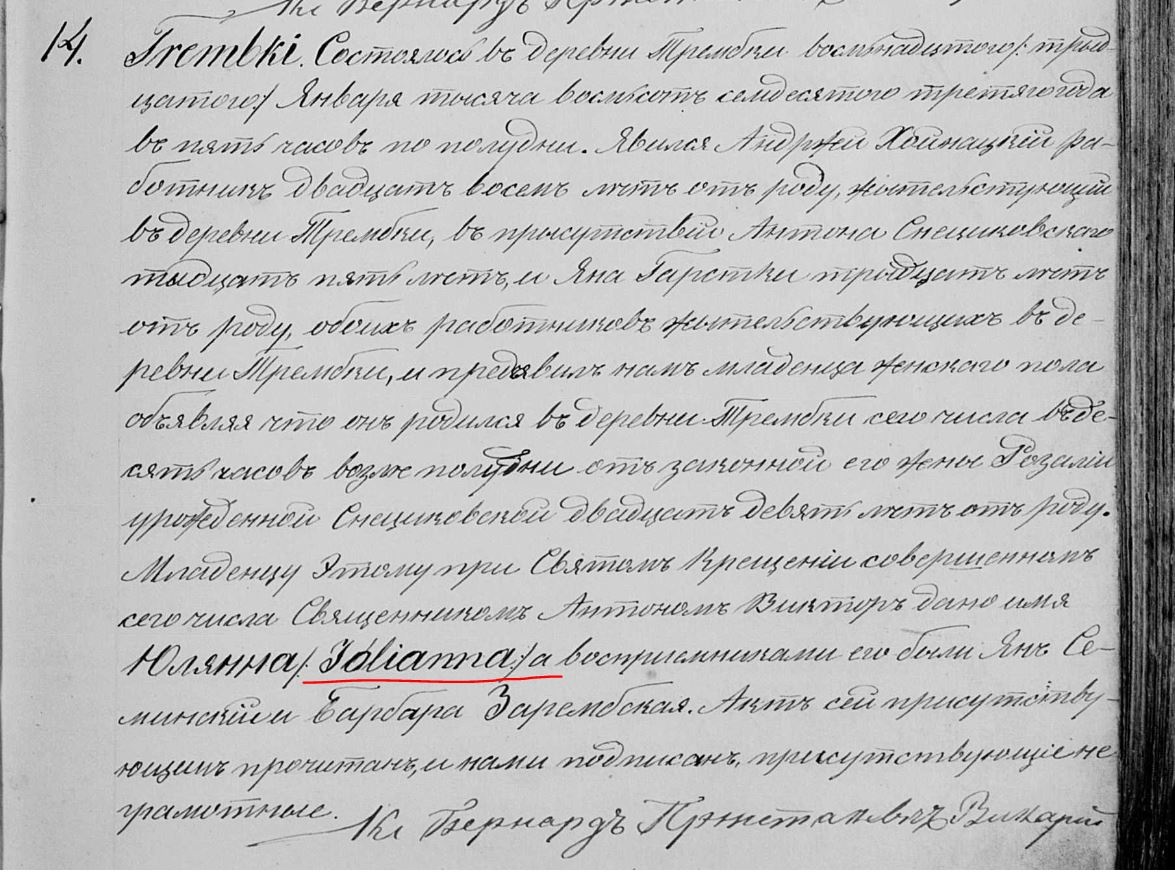 Кс Бернардъ
14. Trembki. Состоялось въ деревни Трембки восмьнадцатого /: трыд-
цатого:/ Января тысяча восмьсотъ семдесятого третяго года
въ пять часовъ по полудни. Явился Андржей Хойнацкій ра-
ботникъ двадцать восемъ лѣтъ отъ роду, жительстующій
въ деревни Трембки, въ присутствіи Антона Снециковского
тыдцать пять лѣтъ, и Яна Гарстки трыдцать лѣтъ
отъ роду, обоихъ работниковъ жительствующихъ въ де-
ревни Трембки, и предявилъ намъ младенца женскаго пола
объявляя что онъ родился въ деревни Трембки сего числа въ де-
сять часовъ возле полудни отъ законной его жены Розаліи
урожденной Снециковской двадцать девять лѣтъ отъ роду.
Младенцу Этому при Святомъ Крещеніи совершенномъ
сего числа Священникомъ Антономъ Викторъ дано имя
Юлянна /: Jólianna:/ а восприемниками его были Янъ Се-
минскій и Барбара Зарембская. Актъ сей присутству-
ющимъ прочитанъ, и нами подписанъ, присутствующіе не
грамотные.
Кс Бернардъ Викарій